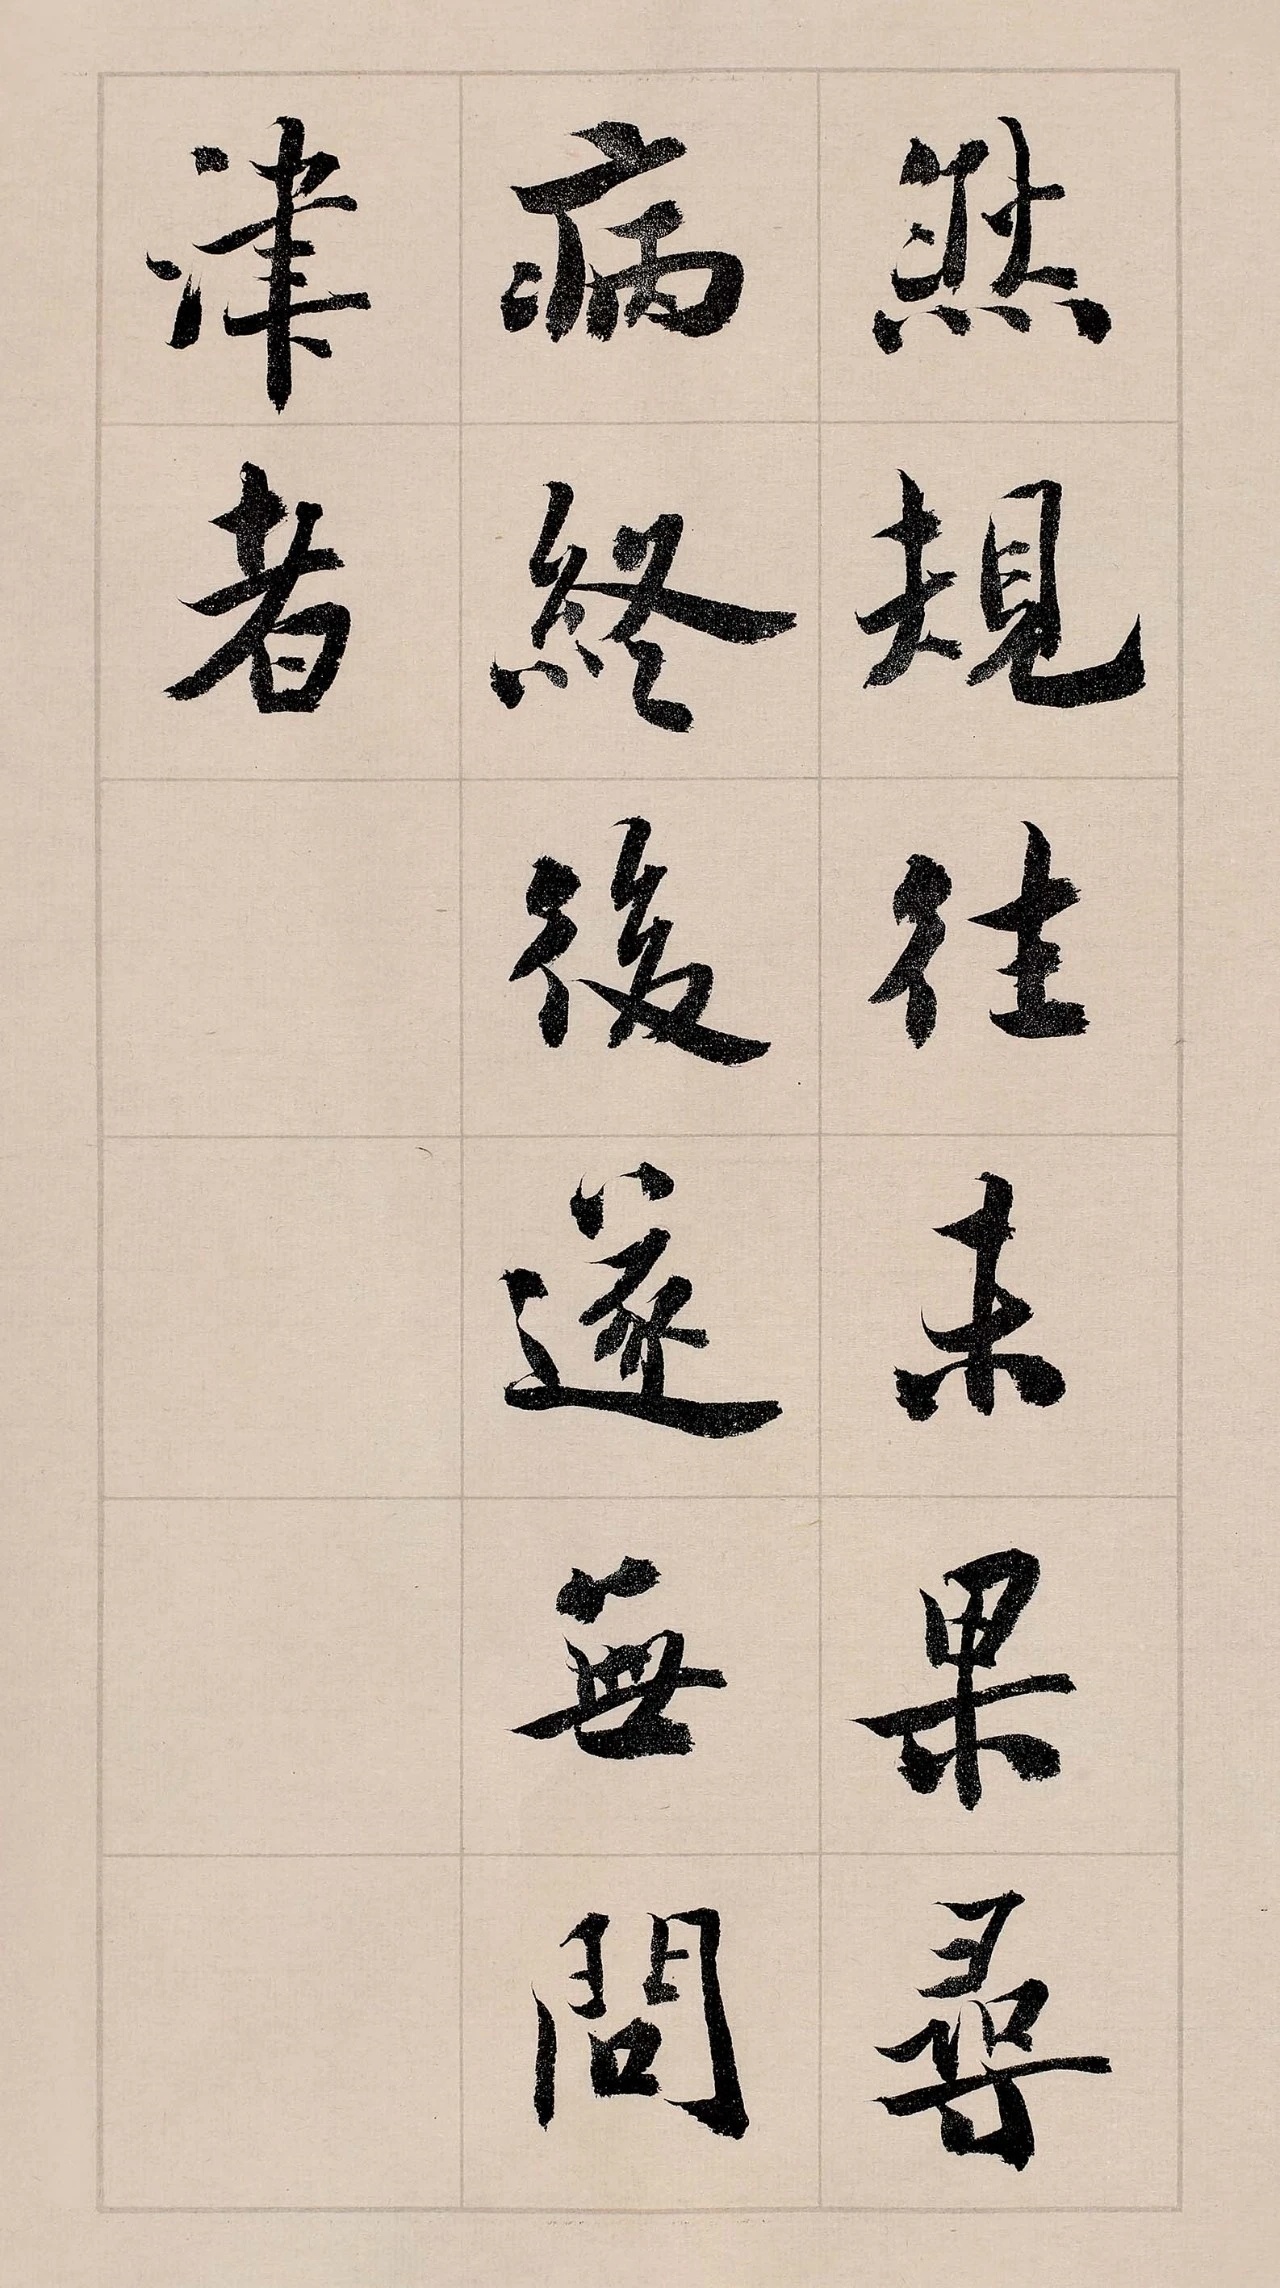 然規往未果尋
病終後遂無問
津者